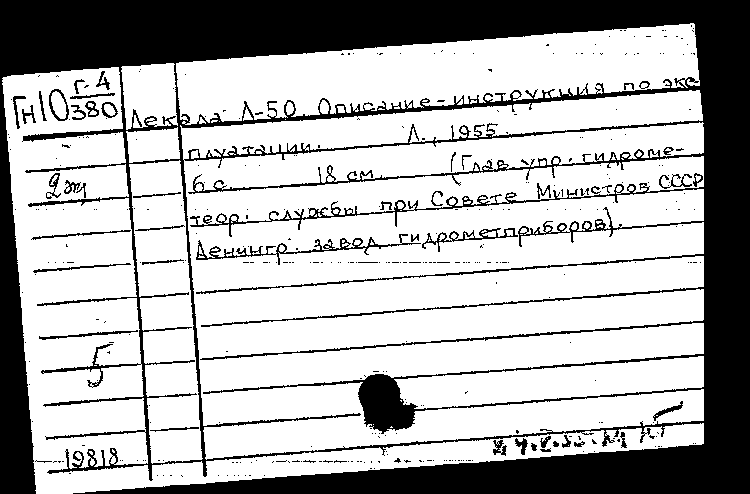 Гн10 г-4
380
Лекала Л-50. Описание-инструкция по экс
плуатации. Л., 1955
2 эк
6 с. 18 см. (Глав. упр. гидроме-
теор. службы при Совете Министров СССР
Ленингр. завод гидрометприборов).
5
19818